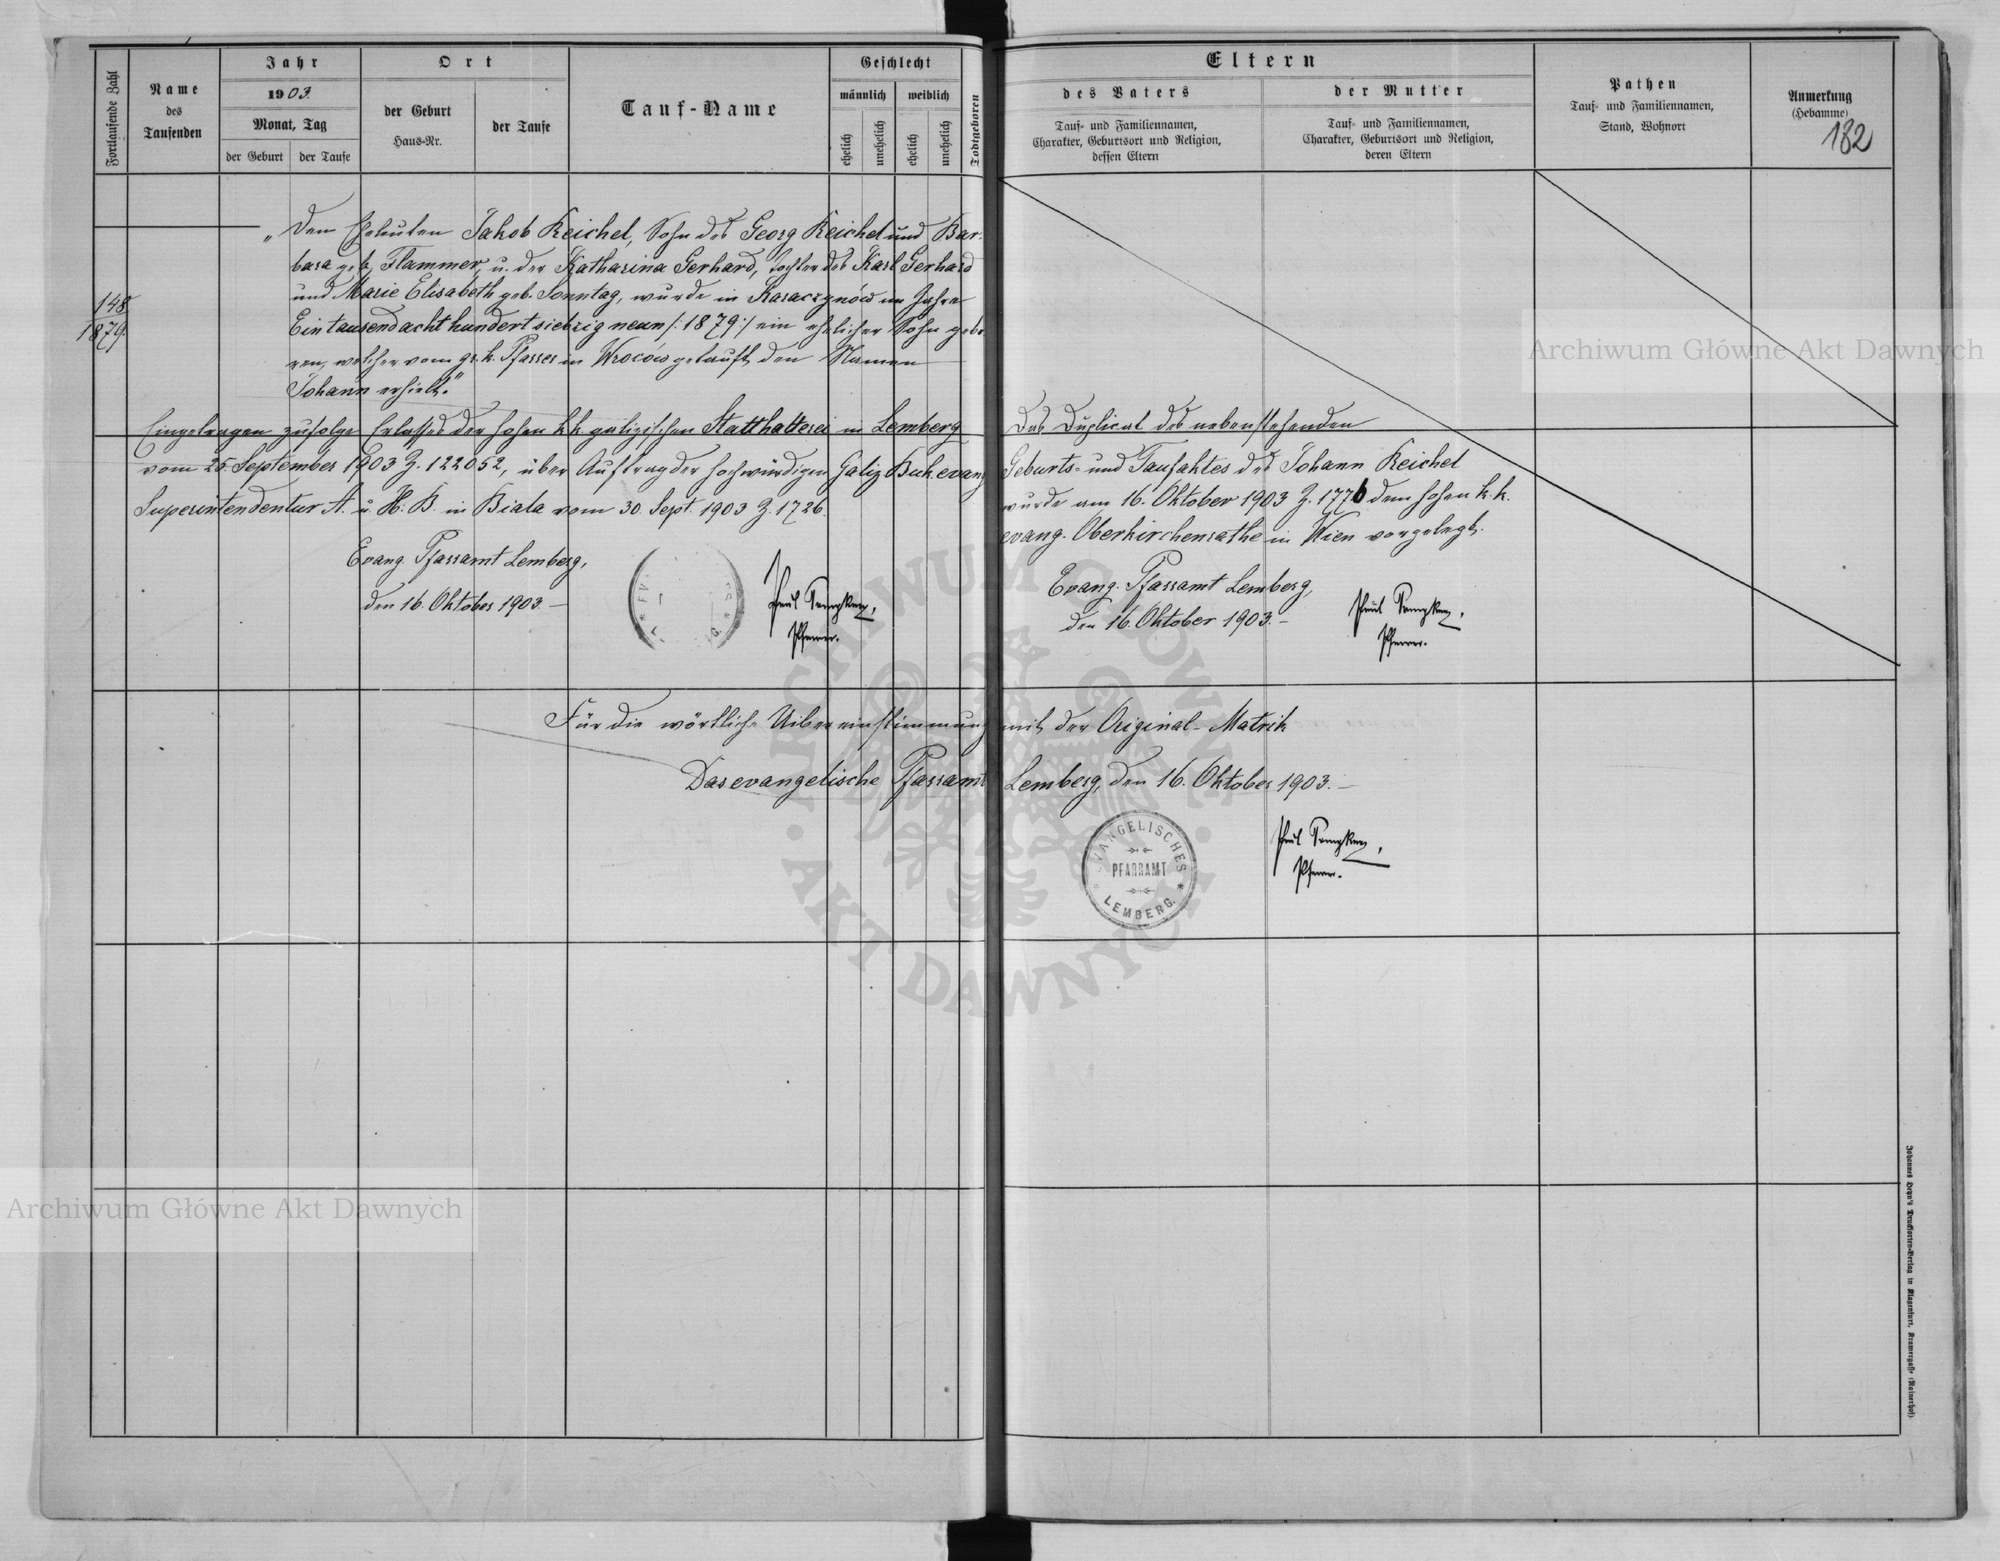 Fortlaufende Zahl
Name
des
Taufenden
Jahr
1903.
Monat, Tag
der Geburt
der Taufe
Ort
der Geburt
Haus-Nr.
der Taufe
Tauf-Name
Geschlecht
männlich
weiblich
ehelich
unehelich
ehelich
unehelich
Todtgeboren
Eltern
des Vaters
Tauf- und Familiennamen,
Charakter, Geburtsort und Religion,
dessen Eltern
der Mutter
Tauf- und Familiennamen,
Charakter, Geburtsort und Religion,
deren Eltern
Pathen
Tauf- und Familiennamen,
Stand, Wohnort
Anmerkung
(Hebamme)
132
148
1879.
„Den Eheleuten Jakob Reichel, Sohn des Georg Reichel und Bar-
bara geb. Flammer, u. der Katharina Gerhard, Tochter des Karl Gerhard
und Marie Elisabeth geb. Sonntag, wurde in Karaczynów im Jahre
Eintausendachthundertsiebzigneun /:1879:/ ein ehelicher Sohn gebo-
ren, welcher vom gr. k. Pfarrer in Wroców getauft, den Namen
Johann erhielt."
Eingetragen zufolge Erlasses der hohen k.k. galizischen Statthalterei in Lemberg
vom 25. September 1903 Z. 122052, über Auftrag der hochwürdigen Galiz. Buk. evang.
Superintendentur A. u. H. B. in Biala vom 30. Sept. 1903 Z. 1726.
Evang. Pfarramt Lemberg,
den 16. Oktober 1903. —
Paul
Pfarrer.
Das Duplicat des nebenstehenden
Geburts- und Taufaktes des Johann Reichel
wurde am 16. Oktober 1903 Z. 1776 dem hohen k.k.
evang. Oberkirchenrathe in Wien vorgelegt.
Evang. Pfarramt Lemberg,
den 16. Oktober 1903. —
Paul
Pfarrer.
Für die wörtliche Uibereinstimmung mit der Original-Matrik
Das evangelische Pfarramt Lemberg, den 16. Oktober 1903. —
EVANGELISCHES
PFARRAMT
LEMBERG.
Paul
Pfarrer.
Johannes Heyn's Drucksorten-Verlag in Klagenfurt, Kramergasse (Rainerhof)
Archiwum Główne Akt Dawnych
Archiwum Główne Akt Dawnych
ARCHIWUM GŁÓWNE · AKT DAWNYCH ·